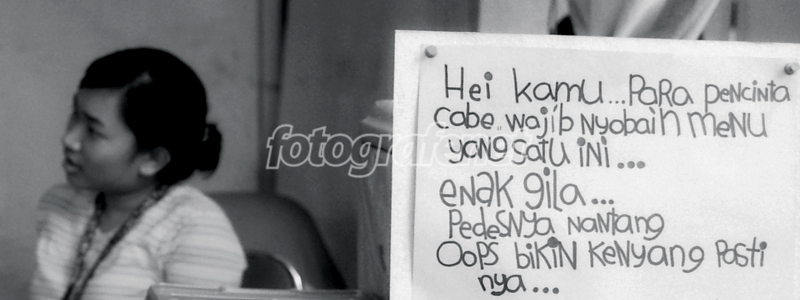 Hei kamu...PaRa peNcinta
cabe..wajib Nyobain meNU
yang satu iNi...
eNak gila...
PedesNya NaNtaNg
OoPs bikiN KeNyang Pasti
nya...